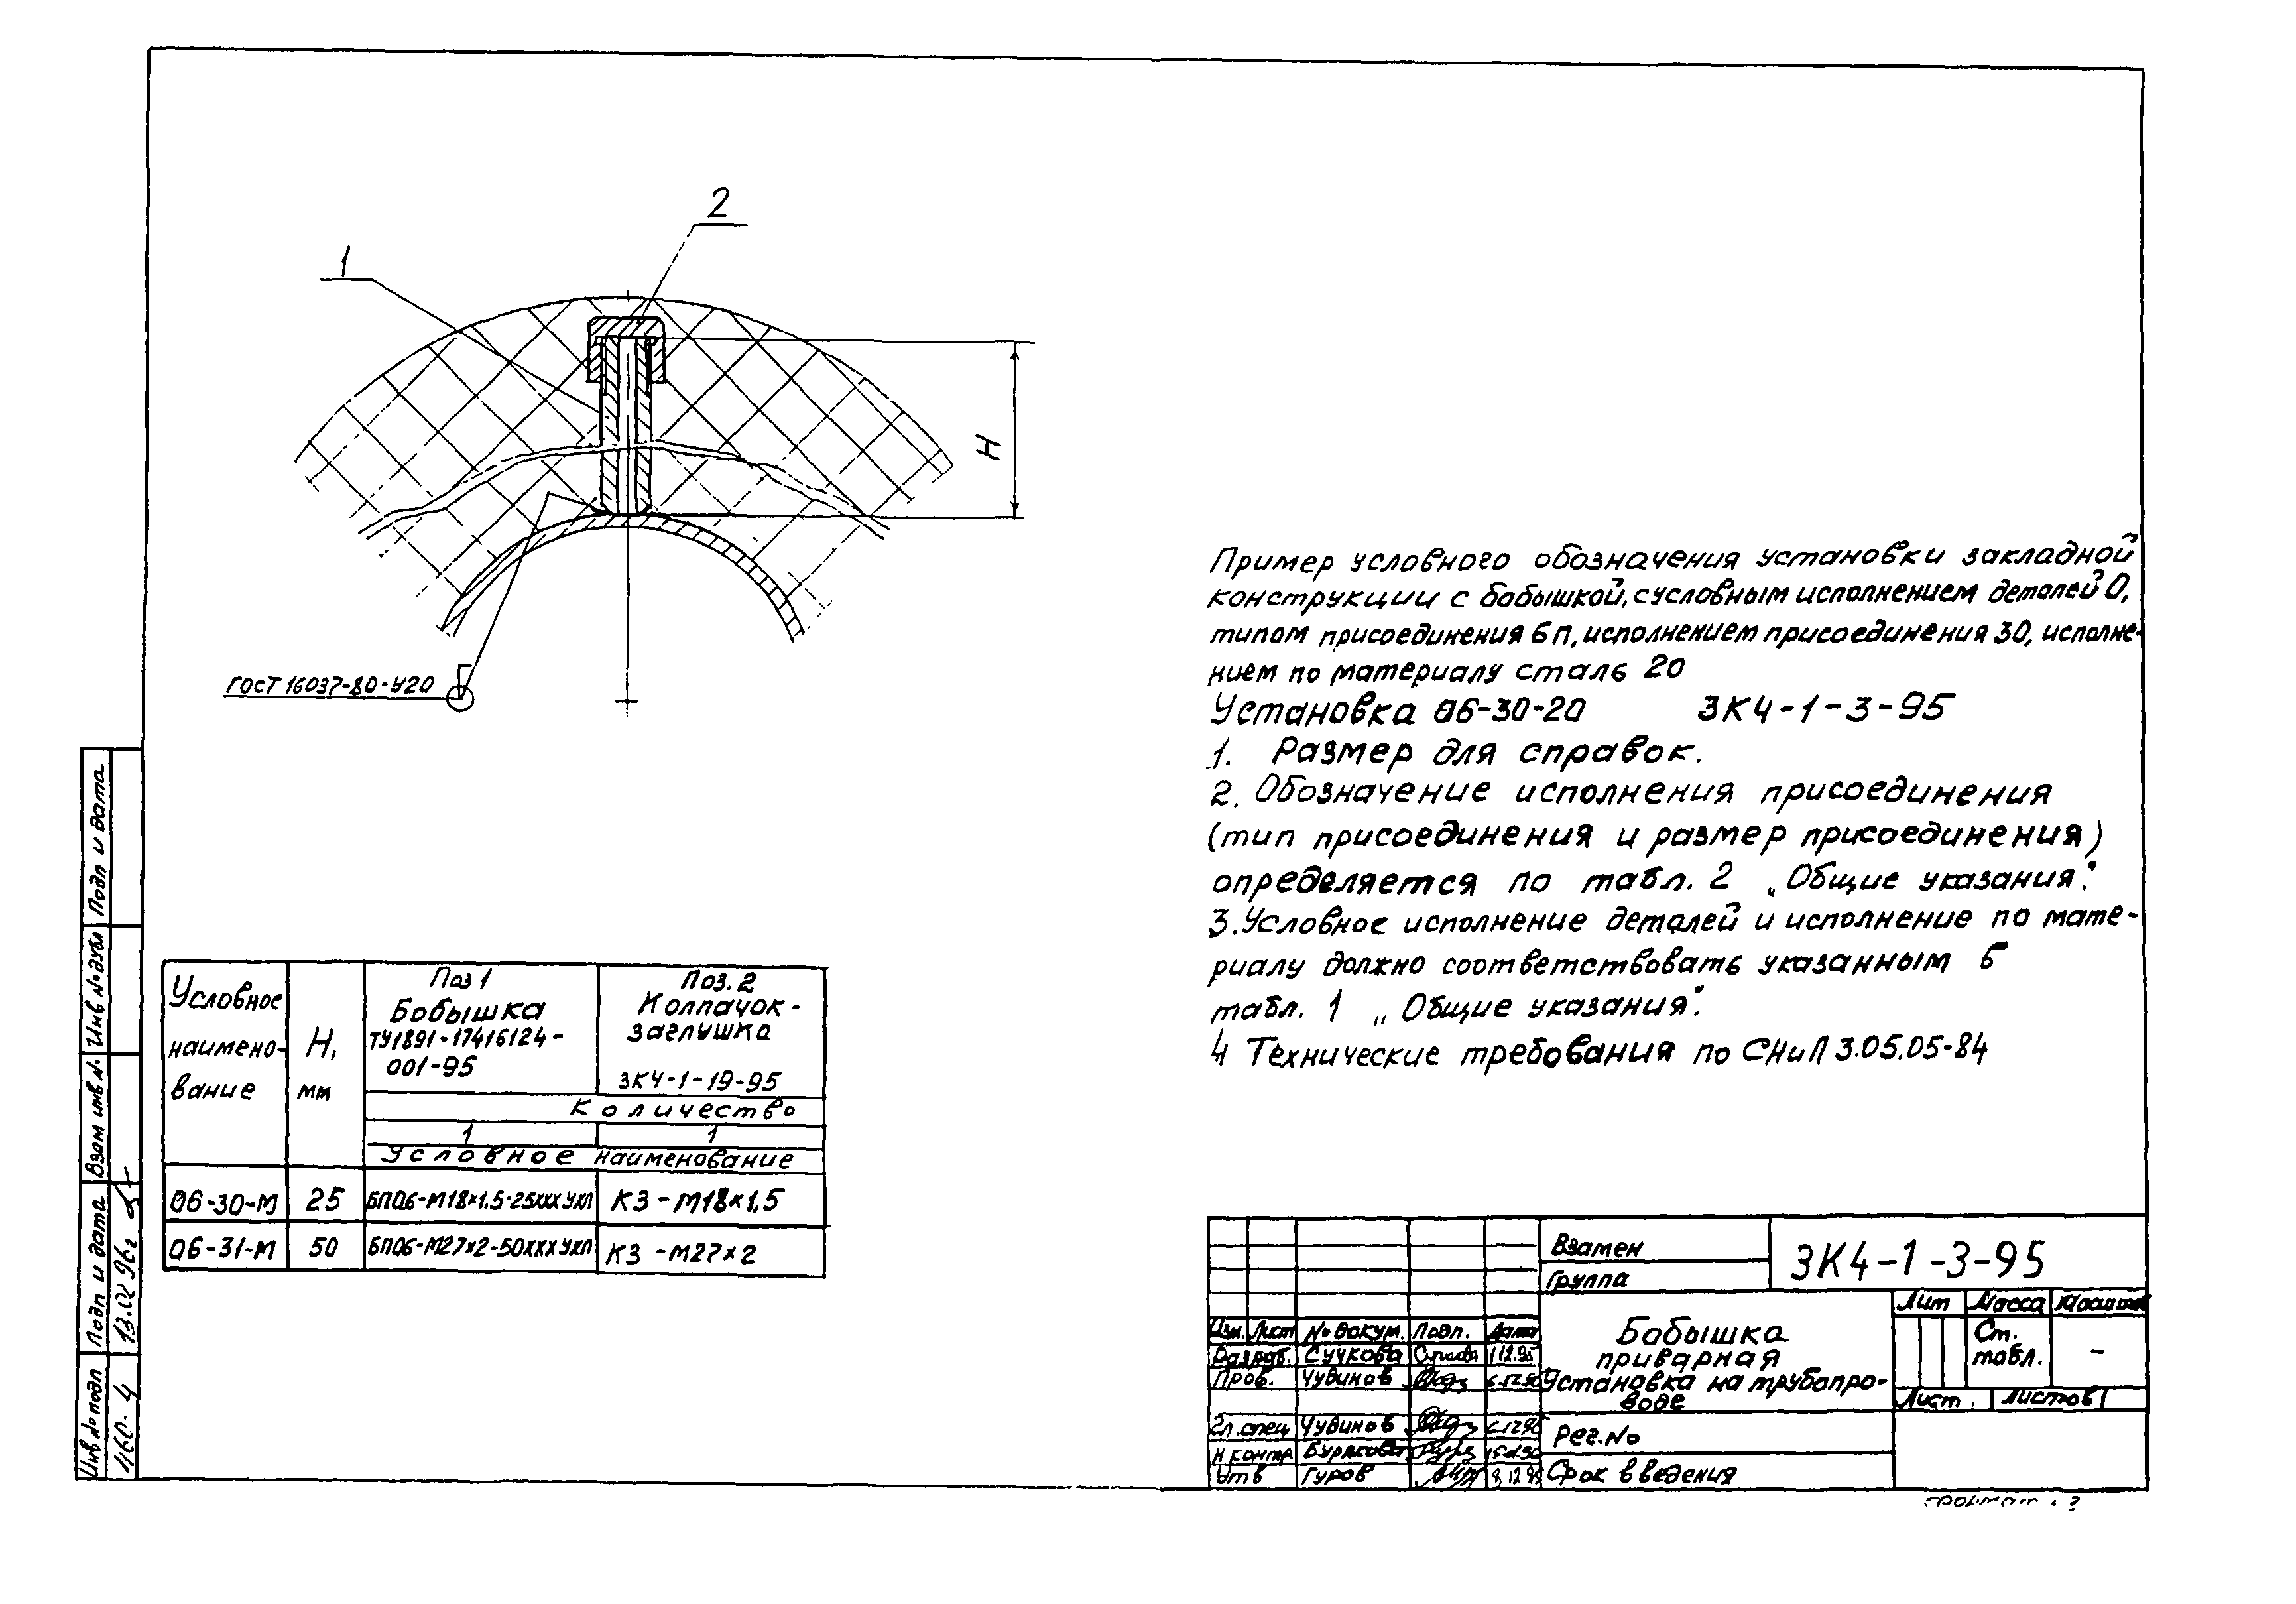 2
1
H
ГОСТ 16037-80-У20
Пример условного обозначения установки закладной
конструкции с бобышкой, с условным исполнением деталей 0,
типом присоединения 6п, исполнением присоединения 30, исполне-
нием по материалу сталь 20
Установка 06-30-20 ЗК4-1-3-95
1. Размер для справок.
2. Обозначение исполнения присоединения
(тип присоединения и размер присоединения)
определяется по табл. 2 „Общие указания".
3. Условное исполнение деталей и исполнение по мате-
риалу должно соответствовать указанным в
табл. 1 „Общие указания".
4 Технические требования по СНиП 3.05.05-84
Условное наимено-вание
H, мм
Поз 1
Бобышка
ТУ1891-17416124-
001-95
Поз. 2
Колпачок-
заглушка
ЗК4-1-19-95
Количество
1 1
Условное наименование
06-30-М 25 БП06-М18×1,5-25ХХХУХЛ КЗ-М18×1,5
06-31-М 50 БП06-М27×2-50ХХХУХЛ КЗ-М27×2
Подп и дата
Инв № дубл
Взам инв №
Подп и дата 13.02 96г
Инв № подл 1160-4
Взамен
Группа
ЗК4-1-3-95
Изм. Лист № докум. Подп. Дата
Разраб. Сучкова 1.12.95
Пров. Чудинов
Гл. спец Чудинов
Н контр Бурякова
Утв Гуров
Бобышка
приварная
Установка на трубопро-
воде
Лит Масса Масштаб
Ст. табл. -
Лист Листов 1
Рег. No
Срок введения